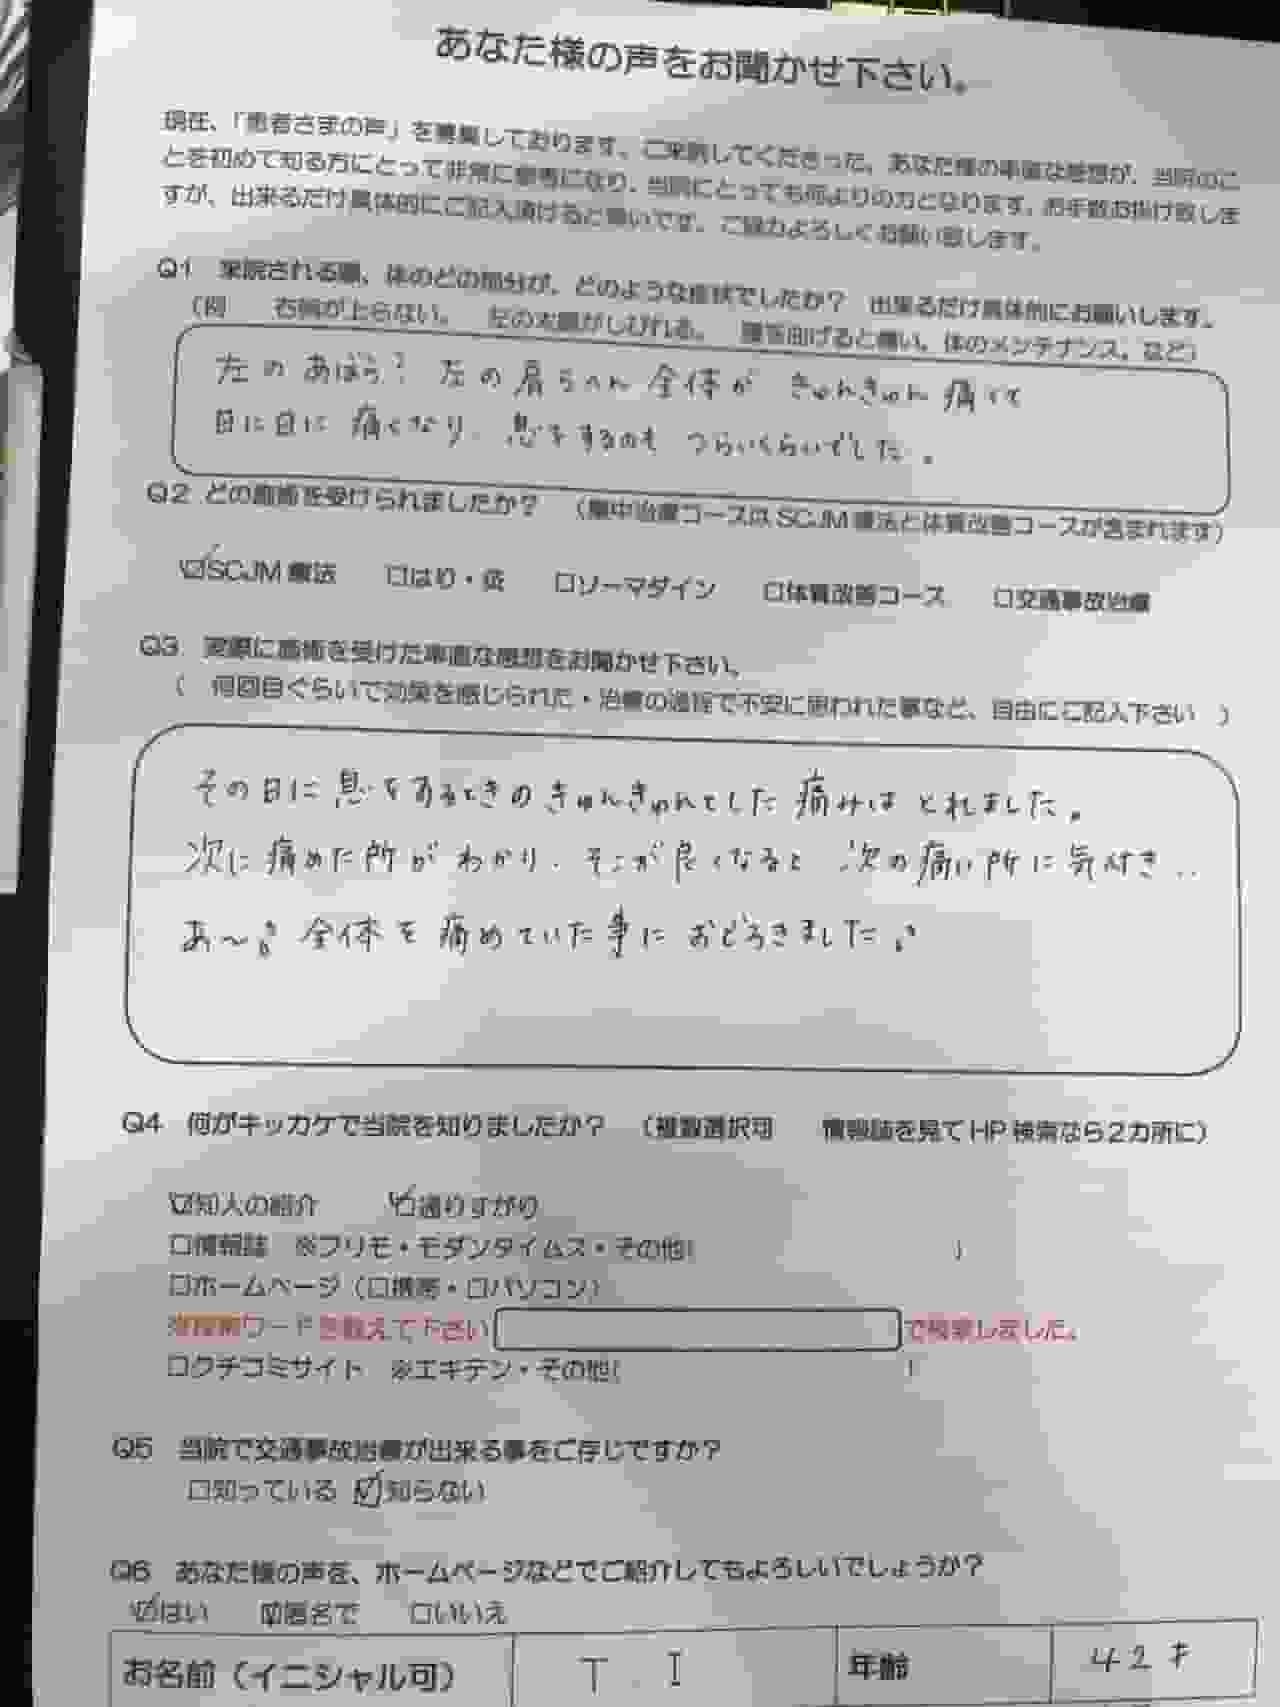 あなた様の声をお聞かせ下さい。
現在、「患者さまの声」を募集しております。ご来院してくださった、あなた様の率直な感想が、当院のこ
とを初めて知る方にとって非常に参考になり、当院にとっても何よりの力となります。お手数お掛け致しま
すが、出来るだけ具体的にご記入頂けると幸いです。ご協力よろしくお願い致します。
Q1 来院される際、体のどの部分が、どのような症状でしたか? 出来るだけ具体的にお願いします。
(例 右腕が上らない。 左の太腿がしびれる。 腰を曲げると痛い。体のメンテナンス。など)
左のあばら? 左の肩らへん全体が きゅんきゅん痛くて
日に日に痛くなり、息をするのも つらいくらいでした。
Q2 どの施術を受けられましたか? (集中治療コースはSCJM療法と体質改善コースが含まれます)
☑SCJM療法 □はり・灸 □ソーマダイン □体質改善コース □交通事故治療
Q3 実際に施術を受けた率直な感想をお聞かせ下さい。
( 何回目ぐらいで効果を感じられた・治療の過程で不安に思われた事など、自由にご記入下さい )
その日に息をするときのきゅんきゅんとした痛みはとれました。
次に痛めた所がわかり、そこが良くなると 次の痛い所に気付き‥
あ〜 全体を痛めていた事におどろきました
Q4 何がキッカケで当院を知りましたか? (複数選択可 情報誌を見てHP検索なら2カ所に)
☑知人の紹介 ☑通りすがり
□情報誌 ※フリモ・モダンタイムス・その他( )
□ホームページ(□携帯・□パソコン)
※検索ワードを教えて下さい で検索しました。
□クチコミサイト ※エキテン・その他( )
Q5 当院で交通事故治療が出来る事をご存じですか?
□知っている ☑知らない
Q6 あなた様の声を、ホームページなどでご紹介してもよろしいでしょうか?
☑はい ☑匿名で □いいえ
お名前(イニシャル可) T I 年齢 42才